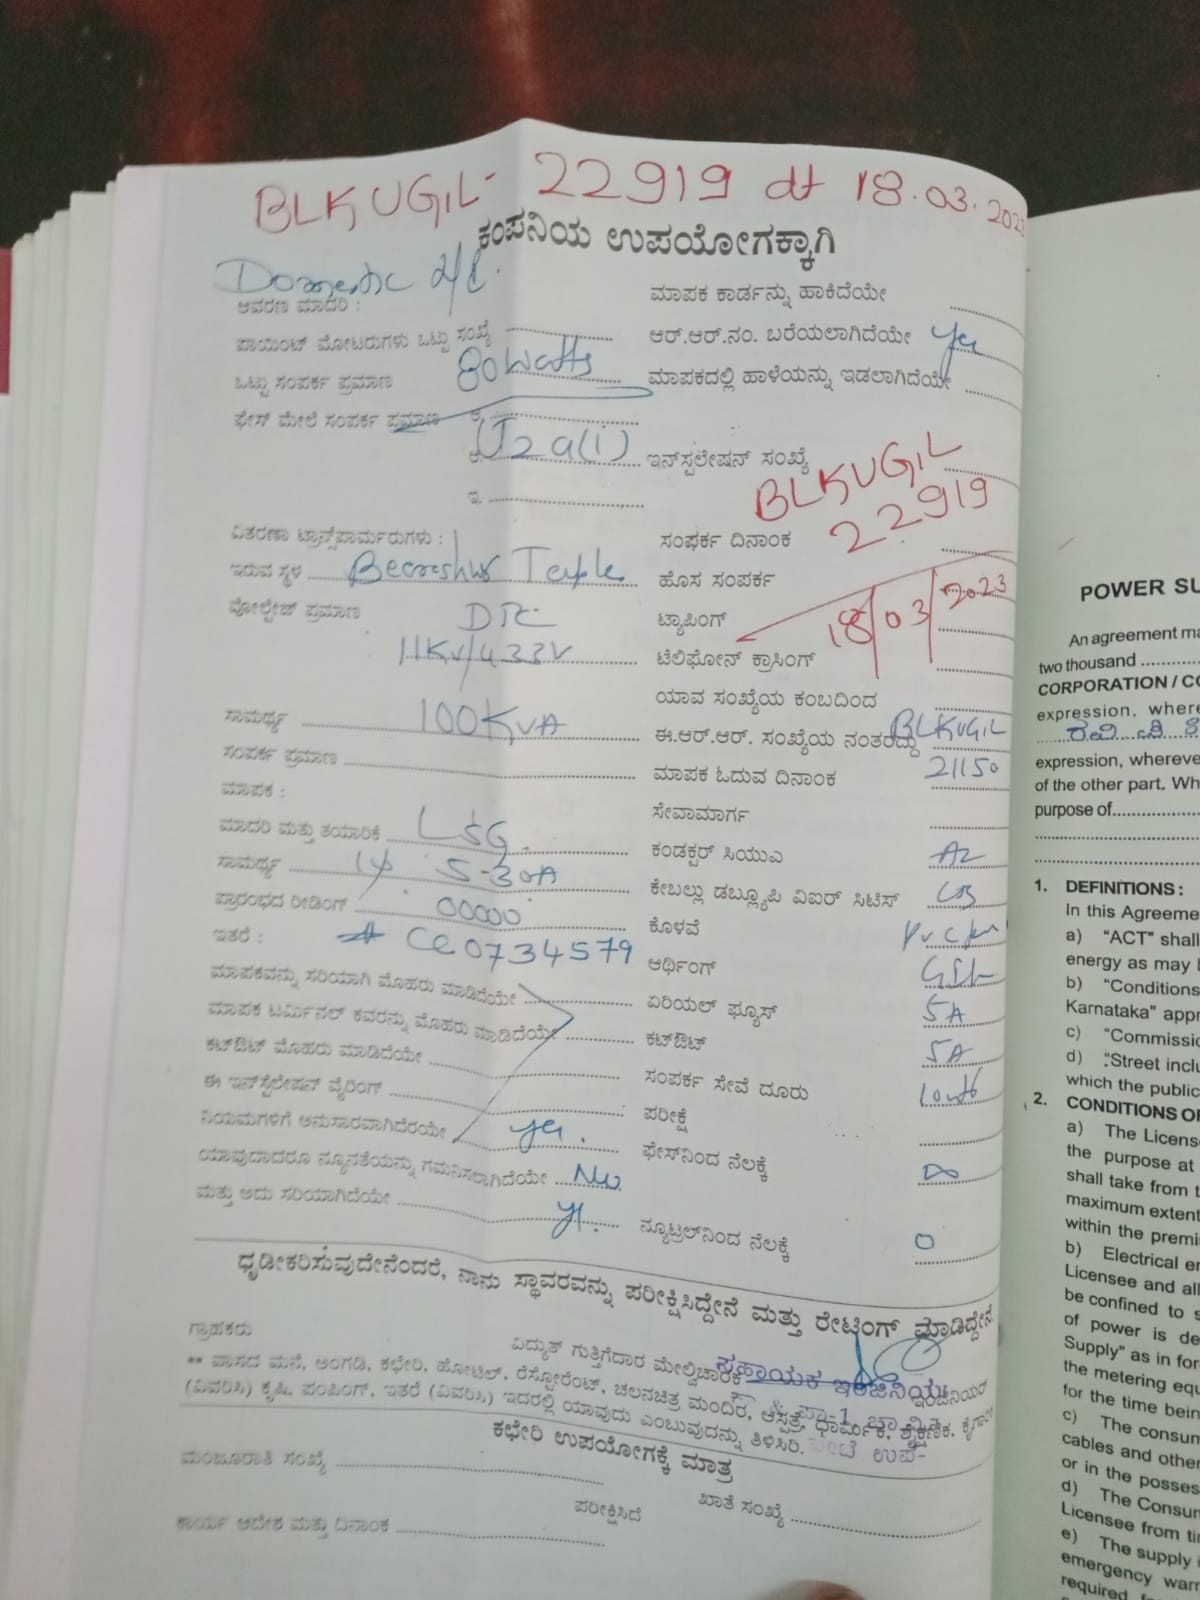 BLKUGIL- 22919 dt 18.03.2023
ಕಂಪನಿಯ ಉಪಯೋಗಕ್ಕಾಗಿ
Domestic
ಆವರಣ ಮಾದರಿ :
ಪಾಯಿಂಟ್ ಮೋಟರುಗಳು ಒಟ್ಟು ಸಂಖ್ಯೆ
ಒಟ್ಟು ಸಂಪರ್ಕ ಪ್ರಮಾಣ 80 Watts
ಫೇಸ್ ಮೇಲೆ ಸಂಪರ್ಕ ಪ್ರಮಾಣ
LT2a(i)
ಇ.
ವಿತರಣಾ ಟ್ರಾನ್ಸ್‌ಪಾರ್ಮರುಗಳು :
ಇರುವ ಸ್ಥಳ
ವೋಲ್ಟೇಜ್ ಪ್ರಮಾಣ
11KV/433V
ಸಾಮರ್ಥ್ಯ 100KVA
ಸಂಪರ್ಕ ಪ್ರಮಾಣ
ಮಾಪಕ :
ಮಾದರಿ ಮತ್ತು ತಯಾರಿಕೆ L&G
ಸಾಮರ್ಥ್ಯ 1φ 5-30A
ಪ್ರಾರಂಭದ ರೀಡಿಂಗ್ 00000
ಇತರೆ : 0734579
ಮಾಪಕವನ್ನು ಸರಿಯಾಗಿ ಮೊಹರು ಮಾಡಿದೆಯೇ
ಮಾಪಕ ಟರ್ಮಿನಲ್ ಕವರನ್ನು ಮೊಹರು ಮಾಡಿದೆಯೇ
ಕಟ್‌ಔಟ್ ಮೊಹರು ಮಾಡಿದೆಯೇ
ಈ ಇನ್‌ಸ್ಟಲೇಷನ್ ವೈರಿಂಗ್
ನಿಯಮಗಳಿಗೆ ಅನುಸಾರವಾಗಿದೆರಯೇ yes.
ಯಾವುದಾದರೂ ನ್ಯೂನತೆಯನ್ನು ಗಮನಿಸಲಾಗಿದೆಯೇ
ಮತ್ತು ಅದು ಸರಿಯಾಗಿದೆಯೇ
ಮಾಪಕ ಕಾರ್ಡನ್ನು ಹಾಕಿದೆಯೇ
ಆರ್.ಆರ್.ನಂ. ಬರೆಯಲಾಗಿದೆಯೇ yes
ಮಾಪಕದಲ್ಲಿ ಹಾಳೆಯನ್ನು ಇಡಲಾಗಿದೆಯೇ
ಇನ್‌ಸ್ಪಲೇಷನ್ ಸಂಖ್ಯೆ BLKUGIL
22919
ಸಂಪರ್ಕ ದಿನಾಂಕ
ಹೊಸ ಸಂಪರ್ಕ
ಟ್ಯಾಪಿಂಗ್ 18/03/2023
ಟೆಲಿಫೋನ್ ಕ್ರಾಸಿಂಗ್
ಯಾವ ಸಂಖ್ಯೆಯ ಕಂಬದಿಂದ
ಈ.ಆರ್.ಆರ್. ಸಂಖ್ಯೆಯ ನಂತರದ್ದು BLKUGIL
ಮಾಪಕ ಓದುವ ದಿನಾಂಕ 21150
ಸೇವಾಮಾರ್ಗ
ಕಂಡಕ್ಟರ್ ಸಿಯುಎ
ಕೇಬಲ್ಲು ಡಬ್ಲ್ಯೂಪಿ ವಿಐರ್ ಸಿಟಿಸ್
ಕೊಳವೆ
ಆರ್ಥಿಂಗ್
ಏರಿಯಲ್ ಫ್ಯೂಸ್ 5A
ಕಟ್‌ಔಟ್ 5A
ಸಂಪರ್ಕ ಸೇವೆ ದೂರು
ಪರೀಕ್ಷೆ
ಫೇಸ್‌ನಿಂದ ನೆಲಕ್ಕೆ ∞
ನ್ಯೂಟ್ರಲ್‌ನಿಂದ ನೆಲಕ್ಕೆ 0
ಧೃಡೀಕರಿಸುವುದೇನೆಂದರೆ, ನಾನು ಸ್ಥಾವರವನ್ನು ಪರೀಕ್ಷಿಸಿದ್ದೇನೆ ಮತ್ತು ರೇಟಿಂಗ್ ಮಾಡಿದ್ದೇನೆ
ಗ್ರಾಹಕರು ವಿದ್ಯುತ್ ಗುತ್ತಿಗೆದಾರ ಮೇಲ್ವಿಚಾರಕ ಇಂಜಿನಿಯರ್
ಸಹಾಯಕ ಇಂಜಿನಿಯರ
** ವಾಸದ ಮನೆ, ಅಂಗಡಿ, ಕಛೇರಿ, ಹೋಟೆಲ್, ರೆಸ್ಟೋರೆಂಟ್, ಚಲನಚಿತ್ರ ಮಂದಿರ, ಆಸ್ಪತ್ರೆ, ಧಾರ್ಮಿಕ, ಶೈಕ್ಷಣಿಕ, ಕೈಗಾರಿಕೆ
(ವಿವರಿಸಿ) ಕೃಷಿ, ಪಂಪಿಂಗ್, ಇತರೆ (ವಿವರಿಸಿ) ಇದರಲ್ಲಿ ಯಾವುದು ಎಂಬುವುದನ್ನು ತಿಳಿಸಿರಿ.
ಕಛೇರಿ ಉಪಯೋಗಕ್ಕೆ ಮಾತ್ರ
ಮಂಜೂರಾತಿ ಸಂಖ್ಯೆ
ಪರೀಕ್ಷಿಸಿದೆ ಖಾತೆ ಸಂಖ್ಯೆ
ಕಾರ್ಯ ಆದೇಶ ಮತ್ತು ದಿನಾಂಕ
POWER SU
An agreement ma
two thousand
CORPORATION / CO
expression, where
expression, whereve
of the other part. Wh
purpose of
1. DEFINITIONS :
In this Agreeme
a) "ACT" shall
energy as may b
b) "Conditions
Karnataka" appr
c) "Commissio
d) "Street inclu
which the public
2. CONDITIONS OF
a) The License
the purpose at
shall take from t
maximum extent
within the premis
b) Electrical en
Licensee and all
be confined to s
of power is de
Supply" as in for
the metering equ
for the time bein
c) The consum
cables and other
or in the posses
d) The Consun
Licensee from ti
e) The supply i
emergency warr
required